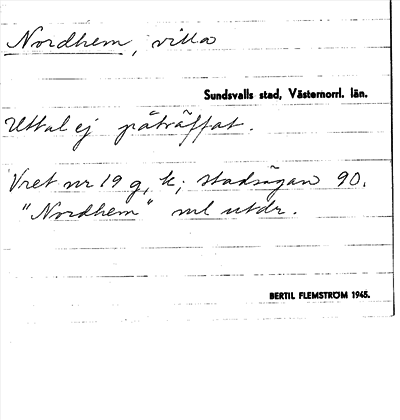 Nordhem, villa
Sundsvalls stad, Västernorrl. län.
Uttal ej påträffat.
Vret nr 19 g, k; stadsägan 90.
"Nordhem" enl utdr.
BERTIL FLEMSTRÖM 1945.